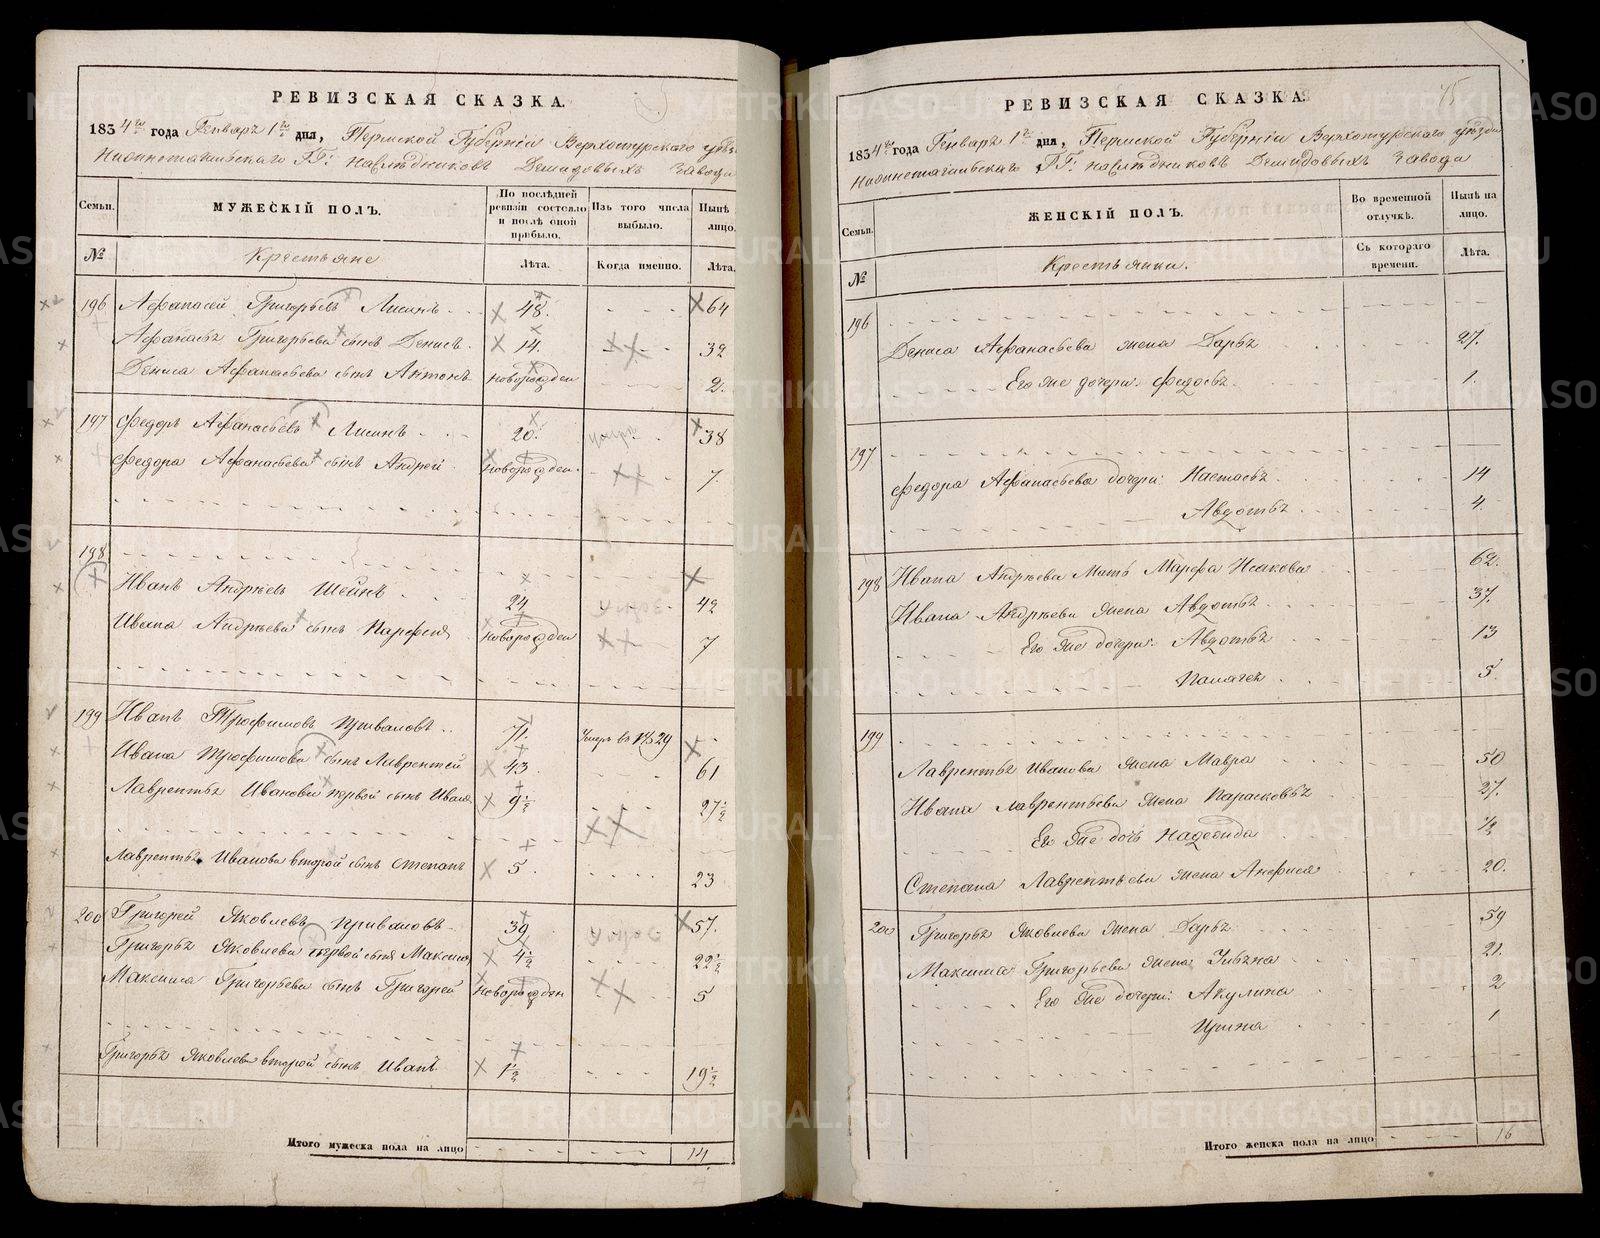 РЕВИЗСКАЯ СКАЗКА.
1834го года Генваря 1го дня, Пермской Губернiи Верхотурскаго уѣз.
Нижнетагильскаго ГГ: наслѣдниковъ Демидовыхъ Завода
Семьи.
МУЖЕСКIЙ ПОЛЪ.
По послѣдней ревизiи состояло и послѣ оной прибыло.
Изъ того числа выбыло.
Нынѣ лицо.
№
Крестьяне
Лѣта.
Когда именно.
Лѣта.
196 Афанасей Григорьевъ Лисинъ 48. 64
Афанасья Григорьева сынъ Денисъ 14. 32
Дениса Афанасьева сынъ Антонъ новорожден 2.
197 Федоръ Афанасьевъ Лисинъ 20. 38
Федора Афанасьева сынъ Андрей новорожден. 7.
198
Иванъ Андрѣевъ Шеинъ 24 42
Ивана Андрѣева сынъ Парфенъ новорожден 7
199 Иванъ Трофимовъ Приваловъ 71. Умеръ въ 1829
Ивана Трофимова сынъ Лаврентей 43 61
Лаврентья Иванова первой сынъ Иванъ 9½ 27½
Лаврентья Иванова второй сынъ Степанъ 5. 23
200 Григорей Яковлевъ Приваловъ 39 57.
Григорья Яковлева первой сынъ Максимъ 4½ 22½
Максима Григорьева сынъ Григорей новорожден 5
Григорья Яковлева второй сынъ Иванъ 1½ 19½
Итого мужеска пола на лицо 14
РЕВИЗСКАЯ СКАЗКА.
1834го года Генваря 1го дня, Пермской Губернiи Верхотурскаго уѣзда
Нижнетагильскаго ГГ: наслѣдниковъ Демидовыхъ Завода
Семьи.
ЖЕНСКIЙ ПОЛЪ.
Во временной отлучкѣ.
Нынѣ на лицо.
№
Крестьянки.
Съ котораго времени.
Лѣта.
196
Дениса Афанасьева жена Дарья 27.
Его же дочери: Федосья 1.
197
Федора Афанасьева дочери: Настасья 14
Авдотья 4.
198 Ивана Андрѣева Мать Марфа Исакова 62.
Ивана Андрѣева жена Авдотья 37.
Его же дочери: Авдотья 13
Палагея 5
199
Лаврентья Иванова жена Мавра 50
Ивана Лаврентьева жена Парасковья 27.
Его же дочь Надежда ½
Степана Лаврентьева жена Анфиса 20.
200 Григорья Яковлева жена Дарья 59
Максима Григорьева жена Ульяна 21.
Его же дочери: Акулина 2
Ирина 1
Итого женска пола на лицо 16